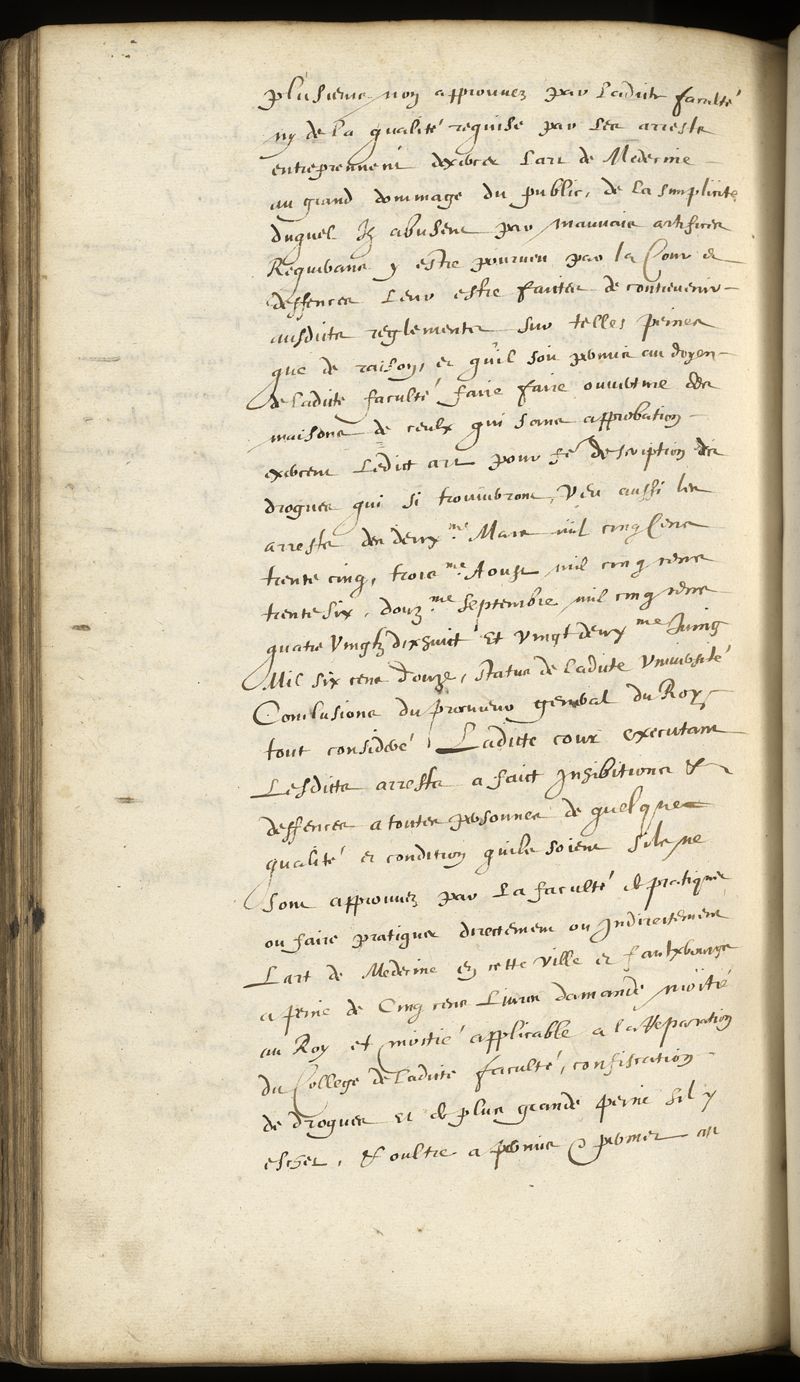 plusieurs non approuvez par ladicte faculté
ny de la qualité requise par les arrests
entreprennent dexercer l'art de Medecine
au grand dommage du public, de la simplicité
duquel Ilz abusent par mauvais artifices
Requerans y estre pourveu par la Cour et
deffences leur estre faictes de contrevenir
ausdicts reglements sur telles peines
que de raison, et qu'il soit permis au doyen
de ladicte faculté faire faire ouverture des
maisons de ceulx qui sans approbation
exercent ledict art pour se description des
drogues qui si trouveront, Veu aussi les
arrests des deux.me Mars mil cinq Cens
trente cinq, trois.me Aoust mil cinq cens
trente six, douz.me Septembre mil cinq cens
quatre Vingtz dixhuict Et vingt deux me Juing
Mil six cens douze, statuts de ladicte Université
Conclusions du procureur general du Roy,
tout consideré, Ladicte cour executant
Lesdicts arrests a faict Inhibitions &
deffences a toutes personnes de quelque
qualité et condition quils soient sils ne
sont approuvez par La faculté de pratiquer
ou faire pratiquer directement ou Indirectement
L'art de Medecine en cette ville et fauxbourgs
a peine de Cinq cens Livres damande moitié
au Roy et moitié applicable a la Reparation
du College de Ladicte faculté, confiscation
de drogues Et de plus grande peine sil y
eschet, & oultre a permis & permet au